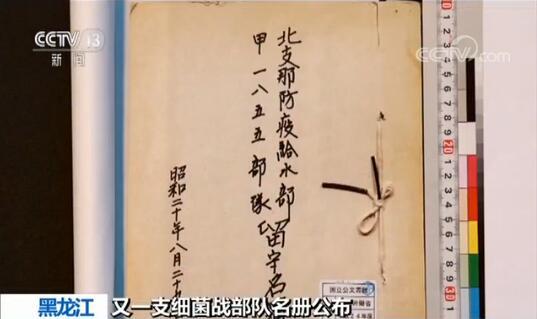 CCTV 13
新闻
CCTV.com
北支那防疫給水部
甲一八五五部隊
留守名
昭和二十年八月二十
国立公文書館
10
20
30
黑龙江 又一支细菌战部队名册公布